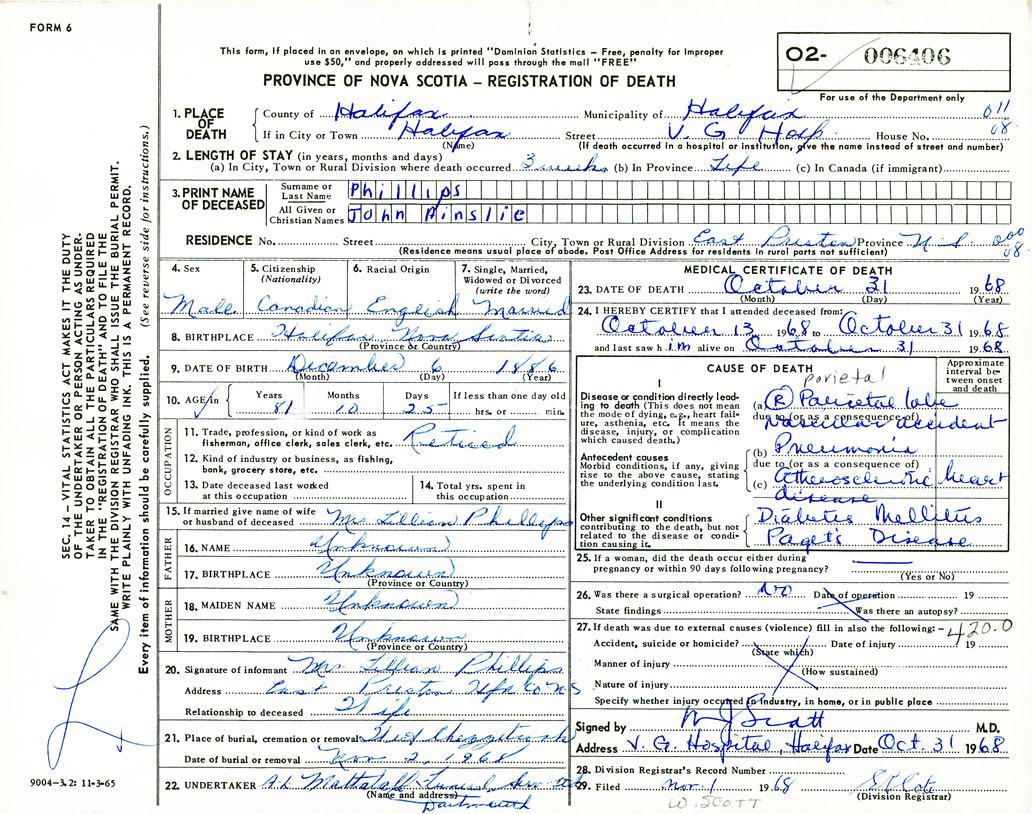 FORM 6
This form, if placed in an envelope, on which is printed "Dominion Statistics – Free, penalty for improper
use $50," and properly addressed will pass through the mail "FREE"
PROVINCE OF NOVA SCOTIA – REGISTRATION OF DEATH
O2- 006406
For use of the Department only
1. PLACE OF DEATH
County of Halifax Municipality of Halifax 011
If in City or Town Halifax Street V. G Hosp House No. 08
(Name) (If death occurred in a hospital or institution, give the name instead of street and number)
2. LENGTH OF STAY (in years, months and days)
(a) In City, Town or Rural Division where death occurred 3 weeks (b) In Province Life (c) In Canada (if immigrant)
3. PRINT NAME OF DECEASED
Surname or Last Name Phillips
All Given or Christian Names John Ainslie
RESIDENCE No. Street City, Town or Rural Division East Preston Province N.S 000
(Residence means usual place of abode. Post Office Address for residents in rural parts not sufficient) 08.
4. Sex
Male
5. Citizenship
(Nationality)
Canadian
6. Racial Origin
English
7. Single, Married,
Widowed or Divorced
(write the word)
Married
8. BIRTHPLACE Halifax Nova Scotia
(Province or Country)
9. DATE OF BIRTH December 6 1886
(Month) (Day) (Year)
10. AGE in
Years Months Days If less than one day old
81 10 25 hrs. or min.
OCCUPATION
11. Trade, profession, or kind of work as
fisherman, office clerk, sales clerk, etc. Retired
12. Kind of industry or business, as fishing,
bank, grocery store, etc.
13. Date deceased last worked
at this occupation
14. Total yrs. spent in
this occupation
15. If married give name of wife
or husband of deceased Mrs Lillian Phillips
FATHER
16. NAME Unknown
17. BIRTHPLACE Unknown
(Province or Country)
MOTHER
18. MAIDEN NAME Unknown
19. BIRTHPLACE Unknown
(Province or Country)
20. Signature of informant Mrs Lillian Phillips
Address East Preston Hfx Co N S
Relationship to deceased Wife
21. Place of burial, cremation or removal
Date of burial or removal Nov 2, 1968
22. UNDERTAKER A.L. Mattatall Funeral
(Name and address)
Dartmouth
MEDICAL CERTIFICATE OF DEATH
23. DATE OF DEATH October 31 1968
(Month) (Day) (Year)
24. I HEREBY CERTIFY that I attended deceased from:
October 13 1968 to October 31 1968
and last saw him alive on October 31 1968
CAUSE OF DEATH
Approximate
interval be-
tween onset
and death
parietal
I
Disease or condition directly lead-
ing to death (This does not mean
the mode of dying, e.g., heart fail-
ure, asthenia, etc. It means the
disease, injury, or complication
which caused death.)
(a) (R) Parietal lobe
due to (or as a consequence of)
vascular accident
Antecedent causes
Morbid conditions, if any, giving
rise to the above cause, stating
the underlying condition last.
(b) Pneumonia
due to (or as a consequence of)
(c) Atherosclerotic heart
disease
II
Other significant conditions
contributing to the death, but not
related to the disease or condi-
tion causing it.
Diabetes Mellitus
Paget's Disease
25. If a woman, did the death occur either during
pregnancy or within 90 days following pregnancy?
(Yes or No)
26. Was there a surgical operation? No Date of operation 19
State findings Was there an autopsy?
27. If death was due to external causes (violence) fill in also the following:– 420.0
Accident, suicide or homicide? Date of injury 19
(State which)
Manner of injury
(How sustained)
Nature of injury
Specify whether injury occurred in industry, in home, or in public place
Signed by M J Scott M.D.
Address V. G. Hospital, Halifax Date Oct. 31 1968
28. Division Registrar's Record Number
29. Filed Nov. 1 1968
(Division Registrar)
W. SCOTT
SEC. 14 – VITAL STATISTICS ACT MAKES IT THE DUTY
OF THE UNDERTAKER OR PERSON ACTING AS UNDER-
TAKER TO OBTAIN ALL THE PARTICULARS REQUIRED
IN THE "REGISTRATION OF DEATH" AND TO FILE THE
SAME WITH THE DIVISION REGISTRAR WHO SHALL ISSUE THE BURIAL PERMIT.
WRITE PLAINLY WITH UNFADING INK. THIS IS A PERMANENT RECORD.
Every item of information should be carefully supplied. (See reverse side for instructions.)
9004–3.2: 11-3-65